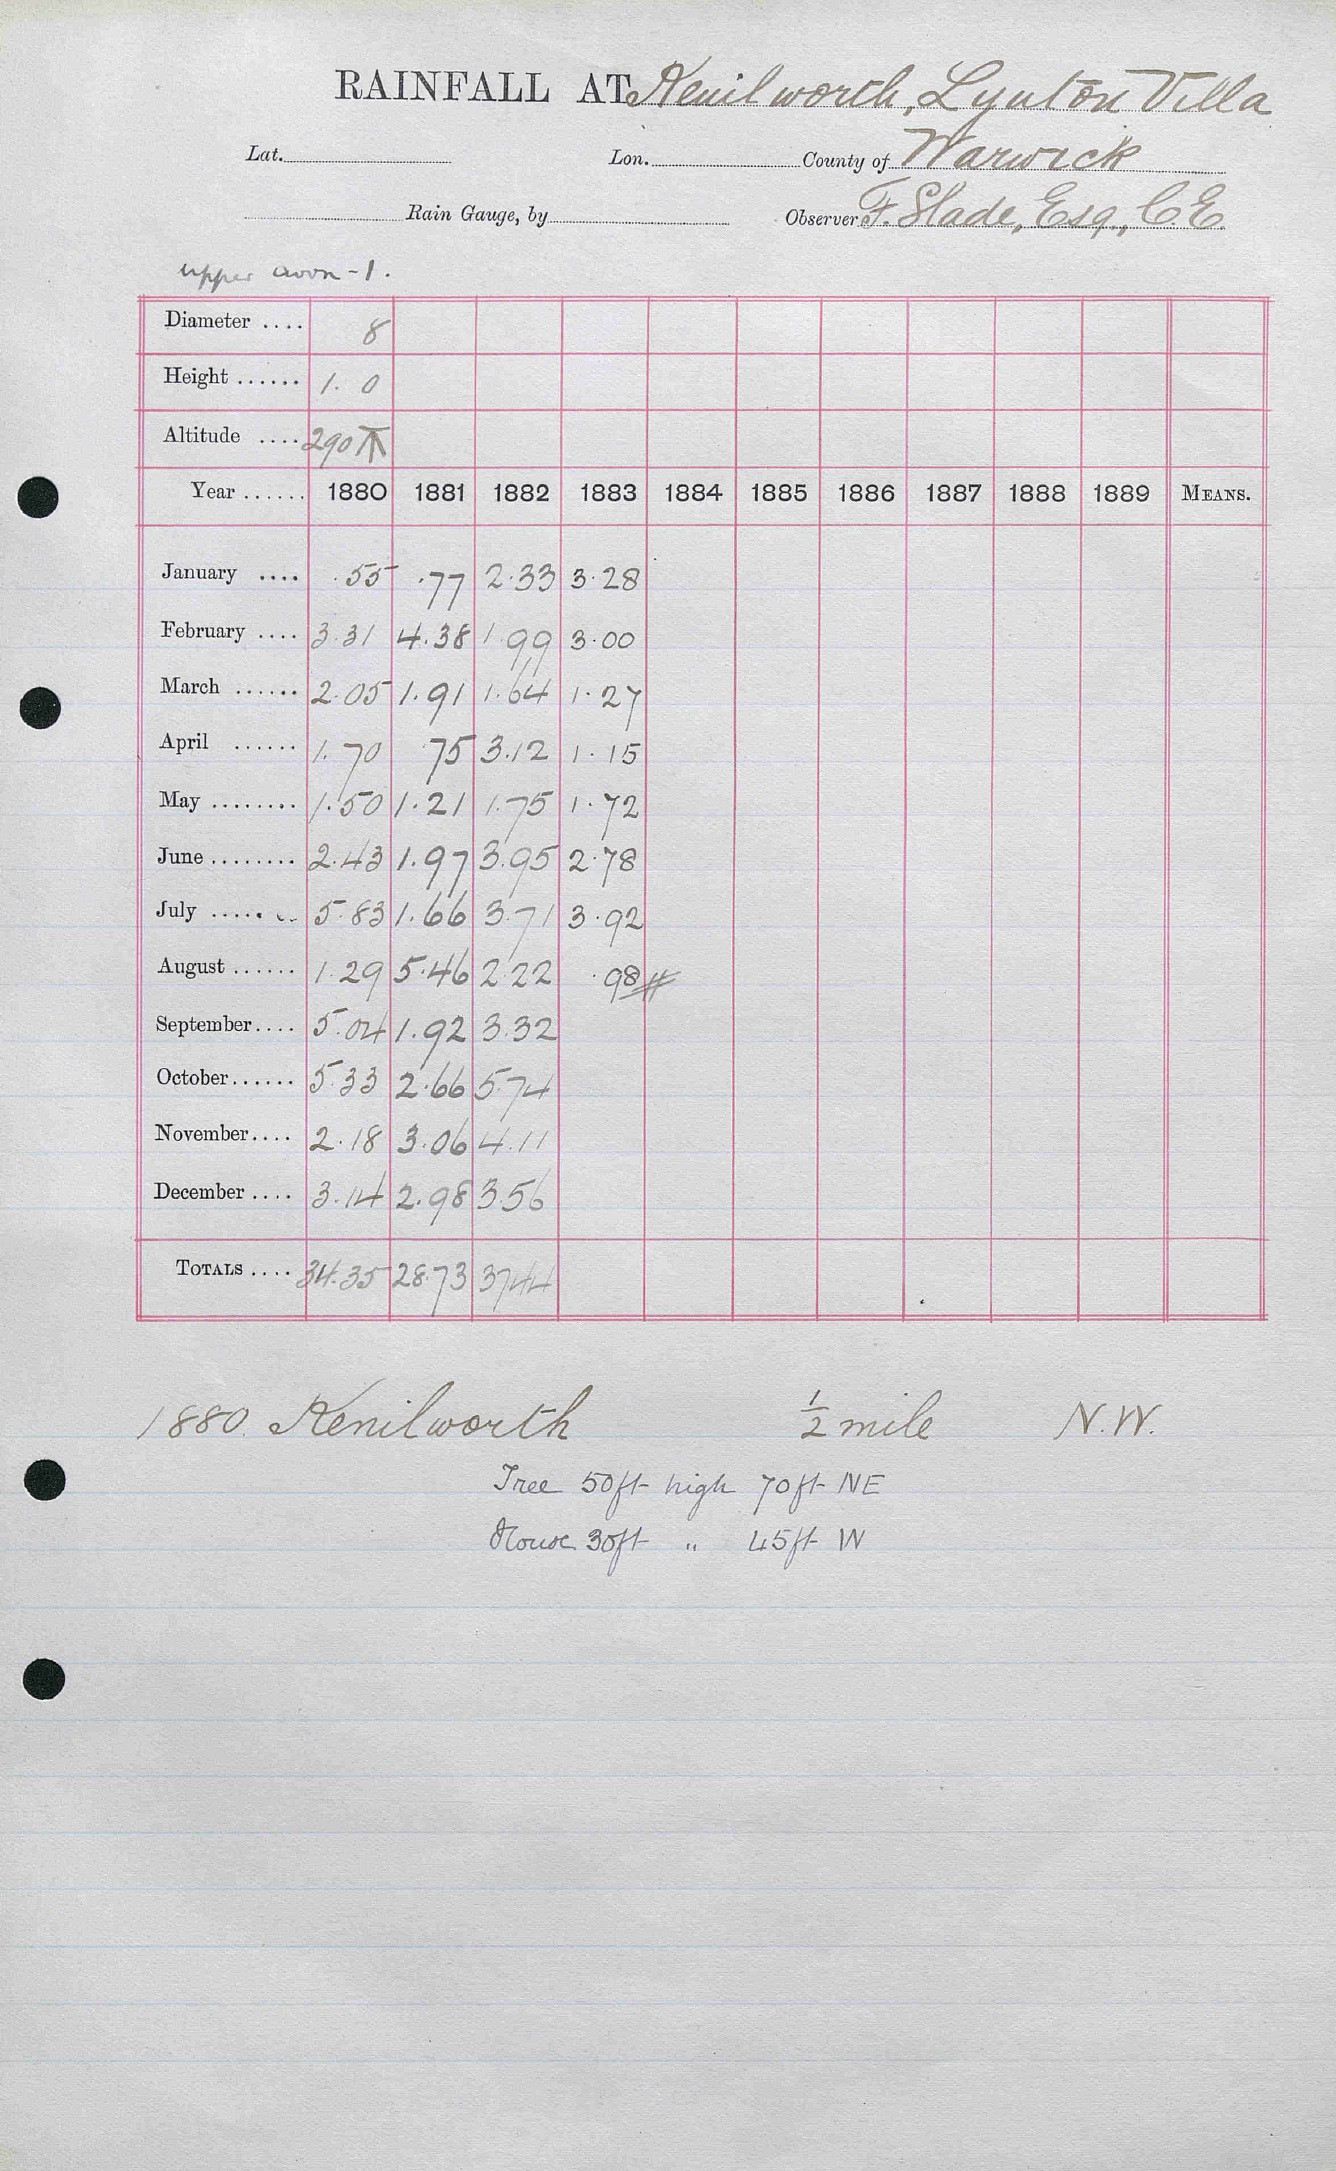 RAINFALL AT Kenilworth, Lynton Villa
Lat. Lon. County of Warwick
Rain Gauge, by Observer F. Slade, Esq., C.E.
upper avon - 1.
Diameter .... 8
Height ...... 1. 0
Altitude .... 290
Year ...... 1880 1881 1882 1883 1884 1885 1886 1887 1888 1889 MEANS.
January .... .55 .77 2.33 3.28
February .... 3.31 4.38 1.99 3.00
March ...... 2.05 1.91 1.64 1.27
April ...... 1.70 .75 3.12 1.15
May ........ 1.50 1.21 1.75 1.72
June ........ 2.43 1.97 3.95 2.78
July ........ 5.83 1.66 3.71 3.92
August ...... 1.29 5.46 2.22 .98 #
September.... 5.04 1.92 3.32
October...... 5.33 2.66 5.74
November.... 2.18 3.06 4.11
December .... 3.14 2.98 3.56
TOTALS .... 34.35 28.73 37.44
1880. Kenilworth ½ mile N.W.
Tree 50ft high 70ft NE
House 30ft " 45ft W